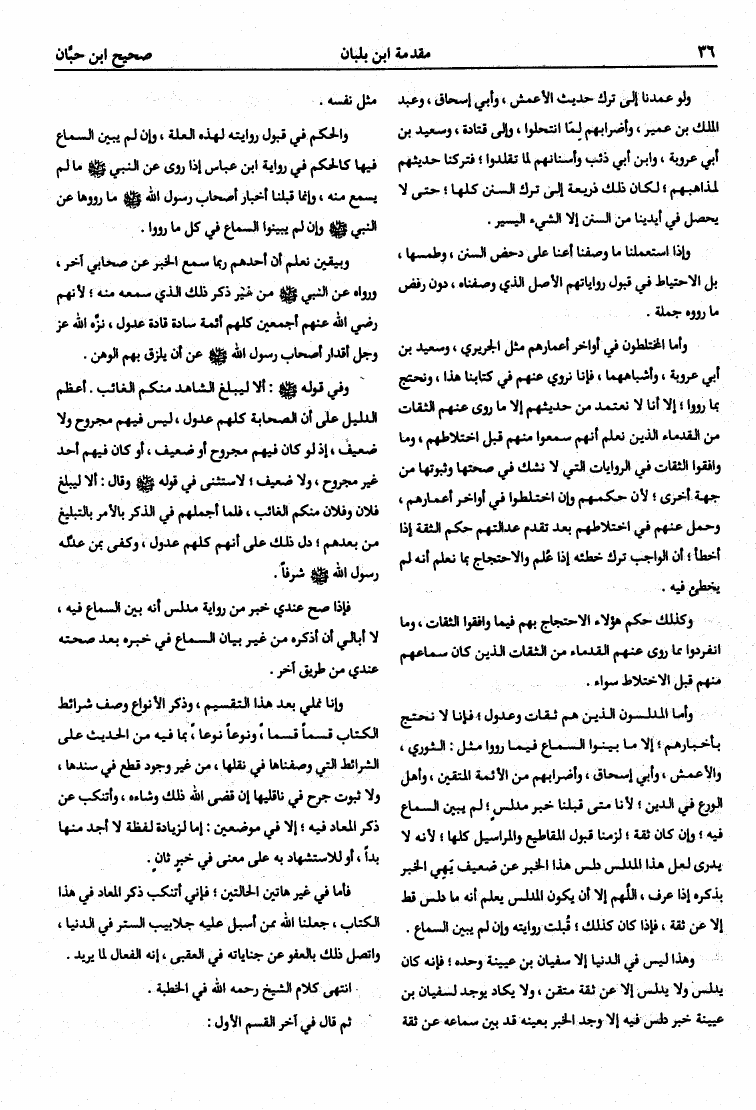 ٣٦
مقدمة ابن بلبان
صحيح ابن حبَّان
ولو عمدنا إلى ترك حديث الأعمش ، وأبي إسحاق ، وعبد
الملك بن عمير ، وأضرابهم لِمَا انتحلوا ، وإلى قتادة ، وسعيد بن
أبي عروبة ، وابن أبي ذئب وأسنانهم لما تقلدوا ؛ فتركنا حديثهم
لمذاهبهم ؛ لكان ذلك ذريعة إلى ترك السنن كلها ؛ حتى لا
يحصل في أيدينا من السنن إلا الشيء اليسير .
وإذا استعملنا ما وصفنا أعنا على دحض السنن ، وطمسها ،
بل الاحتياط في قبول رواياتهم الأصل الذي وصفناه ، دون رفض
ما رووه جملة .
وأما المختلطون في أواخر أعمارهم مثل الجريري ، وسعيد بن
أبي عروبة ، وأشباههما ، فإنا نروي عنهم في كتابنا هذا ، ونحتج
بما رووا ؛ إلا أنا لا نعتمد من حديثهم إلا ما روى عنهم الثقات
من القدماء الذين نعلم أنهم سمعوا منهم قبل اختلاطهم ، وما
وافقوا الثقات في الروايات التي لا نشك في صحتها وثبوتها من
جهة أخرى ؛ لأن حكمهم وإن اختلطوا في أواخر أعمارهم ،
وحمل عنهم في اختلاطهم بعد تقدم عدالتهم حكم الثقة إذا
أخطأ ؛ أن الواجب ترك خطئه إذا عُلم والاحتجاج بما نعلم أنه لم
يخطئ فيه .
وكذلك حكم هؤلاء الاحتجاج بهم فيما وافقوا الثقات ، وما
انفردوا مما روى عنهم القدماء من الثقات الذين كان سماعهم
منهم قبل الاختلاط سواء .
وأما المدلسون الذين هم ثقات وعدول ؛ فإنا لا نحتج
بأخبارهم ؛ إلا ما بينوا السماع فيما رووا مثل : الثوري ،
والأعمش ، وأبي إسحاق ، وأضرابهم من الأئمة المتقين ، وأهل
الورع في الدين ؛ لأنا متى قبلنا خبر مدلسٍ ؛ لم يبين السماع
فيه ؛ وإن كان ثقة ؛ لزمنا قبول المقاطيع والمراسيل كلها ؛ لأنه لا
يدرى لعل هذا المدلس دلس هذا الخبر عن ضعيف يَهِي الخبر
بذكره إذا عرف ، اللَّهم إلا أن يكون المدلس يعلم أنه ما دلس قط
إلا عن ثقة ، فإذا كان كذلك ؛ قُبلت روايته وإن لم يبين السماع .
وهذا ليس في الدنيا إلا سفيان بن عيينة وحده ؛ فإنه كان
يدلس ولا يدلس إلا عن ثقة متقن ، ولا يكاد يوجد لسفيان بن
عيينة خبر دلس فيه إلا وجد الخبر بعينه قد بين سماعه عن ثقة
مثل نفسه .
والحكم في قبول روايته لهذه العلة ، وإن لم يبين السماع
فيها كالحكم في رواية ابن عباس إذا روى عن النبي ﷺ ما لم
يسمع منه ، وإنما قبلنا أخبار أصحاب رسول الله ﷺ ما رووها عن
النبي ﷺ وإن لم يبينوا السماع في كل ما رووا .
وبيقين نعلم أن أحدهم ربما سمع الخبر عن صحابي آخر ،
ورواه عن النبي ﷺ من غير ذكر ذلك الذي سمعه منه ؛ لأنهم
رضي الله عنهم أجمعين كلهم أئمة سادة قادة عدول ، نزَّه الله عز
وجل أقدار أصحاب رسول الله ﷺ عن أن يلزق بهم الوهن .
وفي قوله ﷺ : ألا ليبلغ الشاهد منكم الغائب . أعظم
الدليل على أن الصحابة كلهم عدول ، ليس فيهم مجروح ولا
ضعيف ، إذ لو كان فيهم مجروح أو ضعيف ، أو كان فيهم أحد
غير مجروح ، ولا ضعيف ؛ لاستثنى في قوله ﷺ وقال : ألا ليبلغ
فلان وفلان منكم الغائب ، فلما أجملهم في الذكر بالأمر بالتبليغ
من بعدهم ؛ دل ذلك على أنهم كلهم عدول ، وكفى بمن عدَّله
رسول الله ﷺ شرفاً .
فإذا صح عندي خبر من رواية مدلس أنه بين السماع فيه ،
لا أبالي أن أذكره من غير بيان السماع في خبره بعد صحته
عندي من طريق آخر .
وإنا نملي بعد هذا التقسيم ، وذكر الأنواع وصف شرائط
الكتاب قسماً قسماً ، ونوعاً نوعاً ؛ بما فيه من الحديث على
الشرائط التي وصفناها في نقلها ، من غير وجود قطع في سندها ،
ولا ثبوت جرح في ناقليها إن قضى الله ذلك وشاءه ، وأتنكب عن
ذكر المعاد فيه ؛ إلا في موضعين : إما لزيادة لفظة لا أجد منها
بداً ، أو للاستشهاد به على معنى في خبرٍ ثانٍ .
فأما في غير هاتين الحالتين ؛ فإني أتنكب ذكر المعاد في هذا
الكتاب ، جعلنا الله ممن أسبل عليه جلابيب الستر في الدنيا ،
واتصل ذلك بالعفو عن جناياته في العقبى ، إنه الفعال لما يريد .
انتهى كلام الشيخ رحمه الله في الخطبة .
ثم قال في آخر القسم الأول :